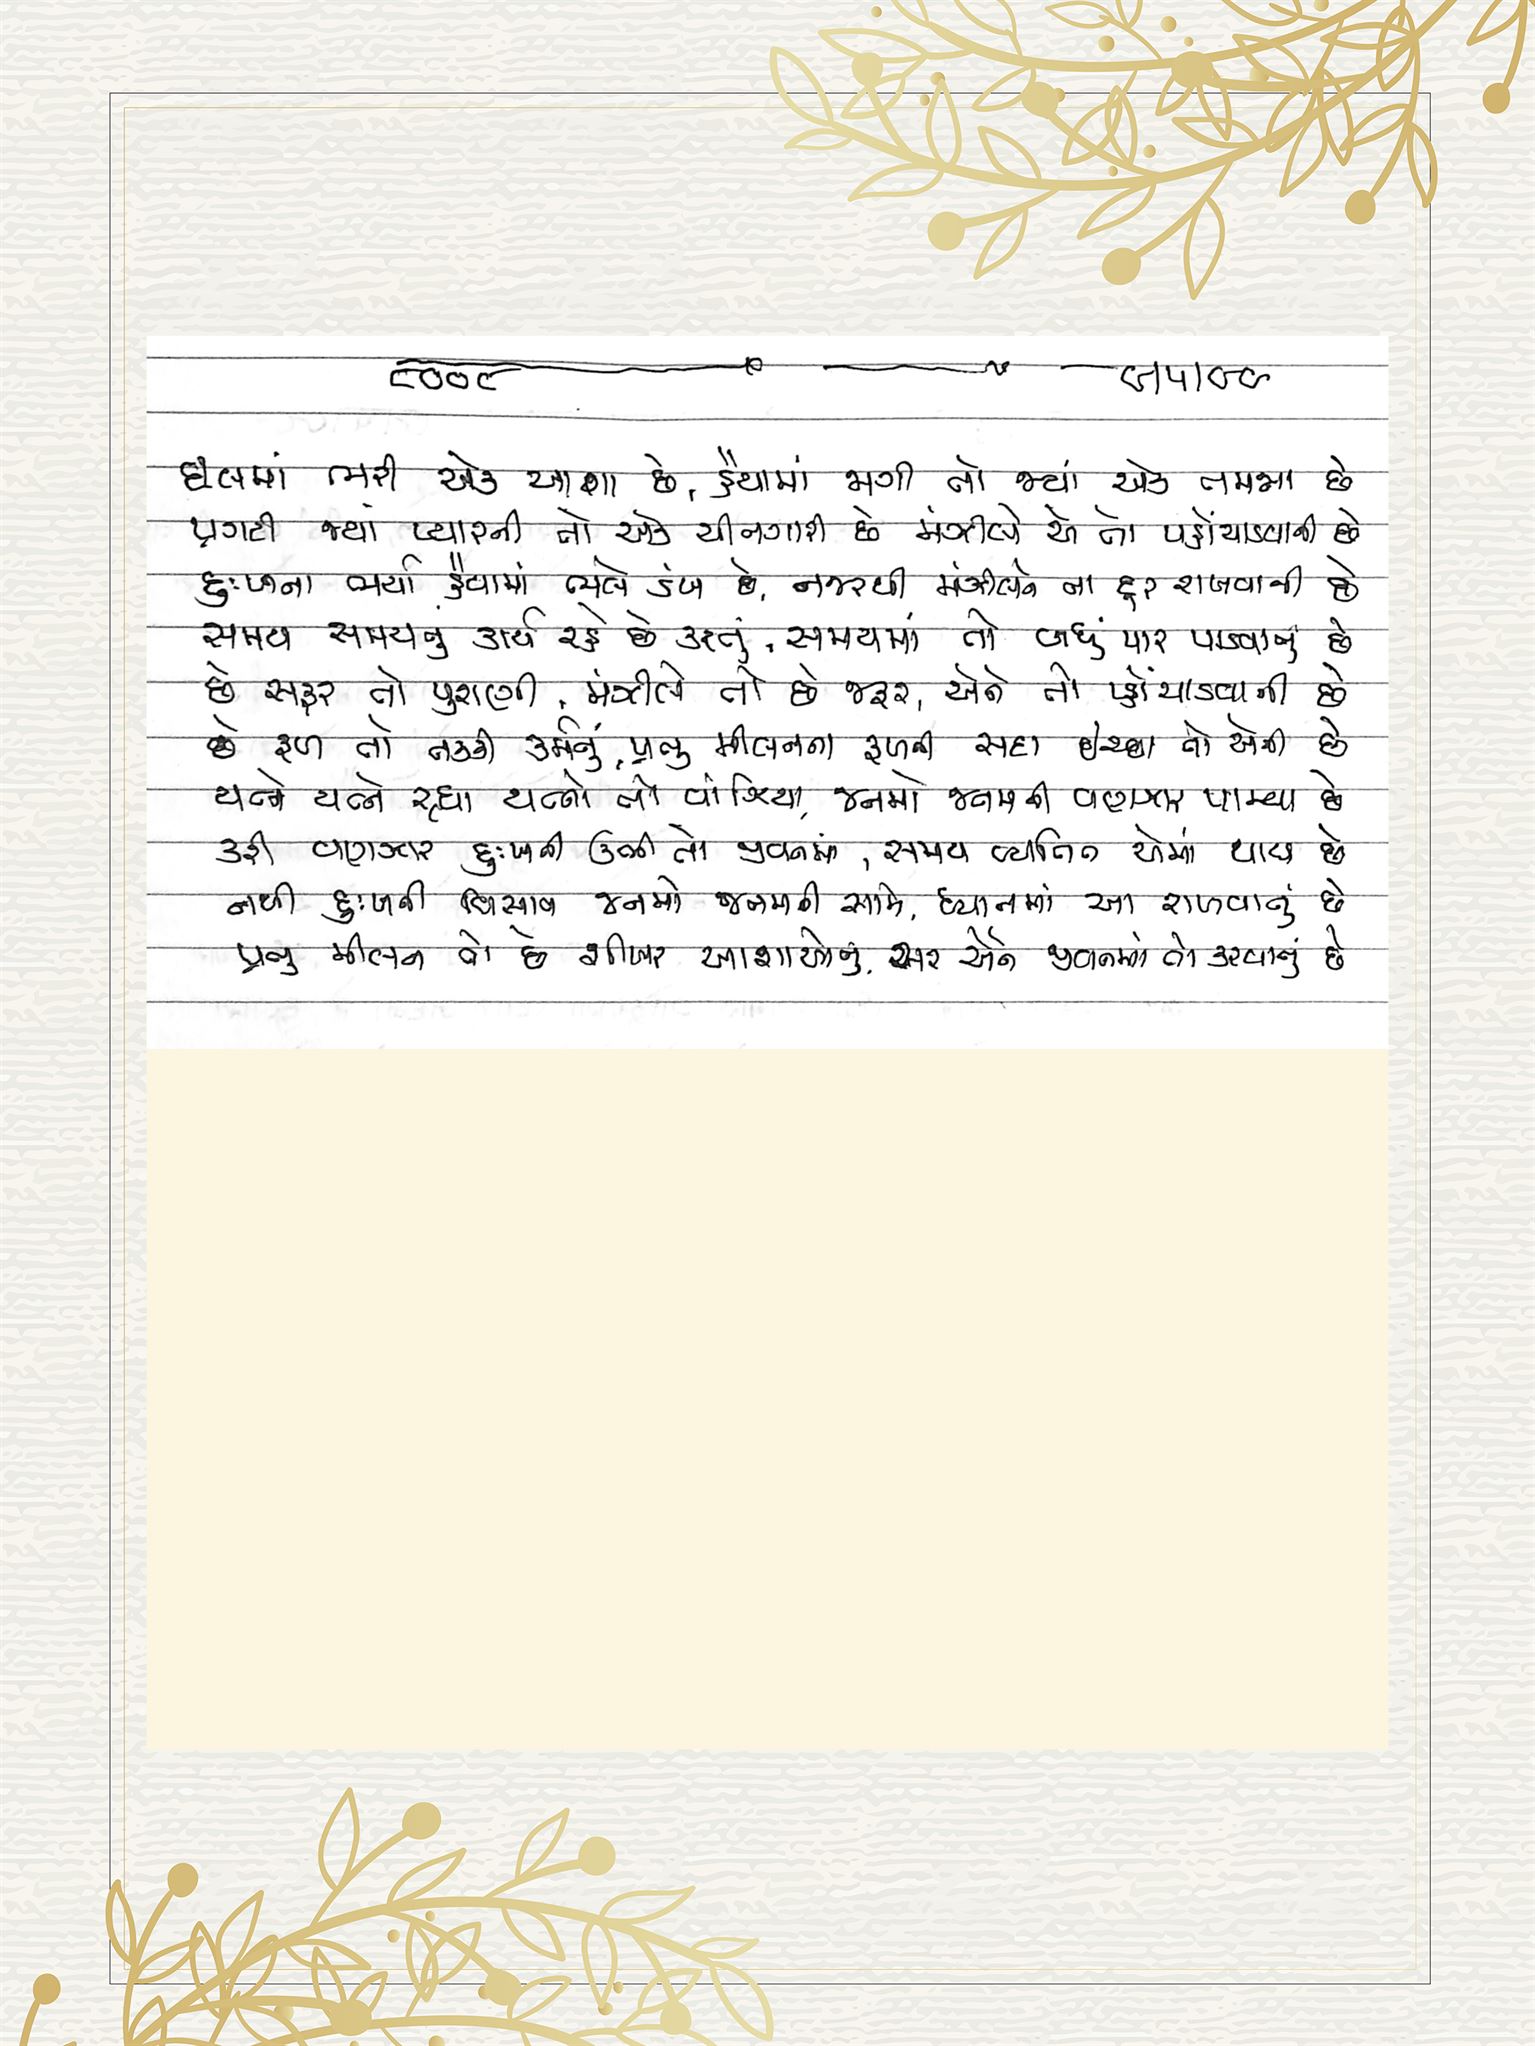 ૮૦૦૮
દીલમાં ભરી એક આશા છે, હૈયામાં જાગી તો જ્યાં એક તમન્ના છે
પ્રગટી જ્યાં પ્યારની તો એક ચીનગારી છે મંઝીલે એ તો પહોંચાડવાની છે
દુઃખના ભર્યા હૈયામાં ભલે ડંખ છે, નજરથી મંઝીલને ના દૂર રાખવાની છે
સમય સમયનું કાર્ય રહે છે કરતું, સમયમાં તો બધું પાર પાડવાનું છે
છે સફર તો પુરાણી, મંઝીલે તો છે જરૂર, એને તો પહોંચાડવાની છે
છે ફળ તો નક્કી કર્મનું, પ્રભુ મીલનના ફળની સદા ઇચ્છા તો એની છે
યત્ને યત્ને રહ્યા યત્નો તો વાંઝિયા, જનમો જનમની વણઝાર પામ્યા છે
કરી વણઝાર દુઃખની ઉભી તો જીવનમાં, સમય વ્યતિત એમાં થાય છે
નથી દુઃખની વિસાત જનમો જનમની સામે, ધ્યાનમાં આ રાખવાનું છે
પ્રભુ મીલન તો છે શીખર આશાઓનું, સર એને જીવનમાં તો કરવાનું છે